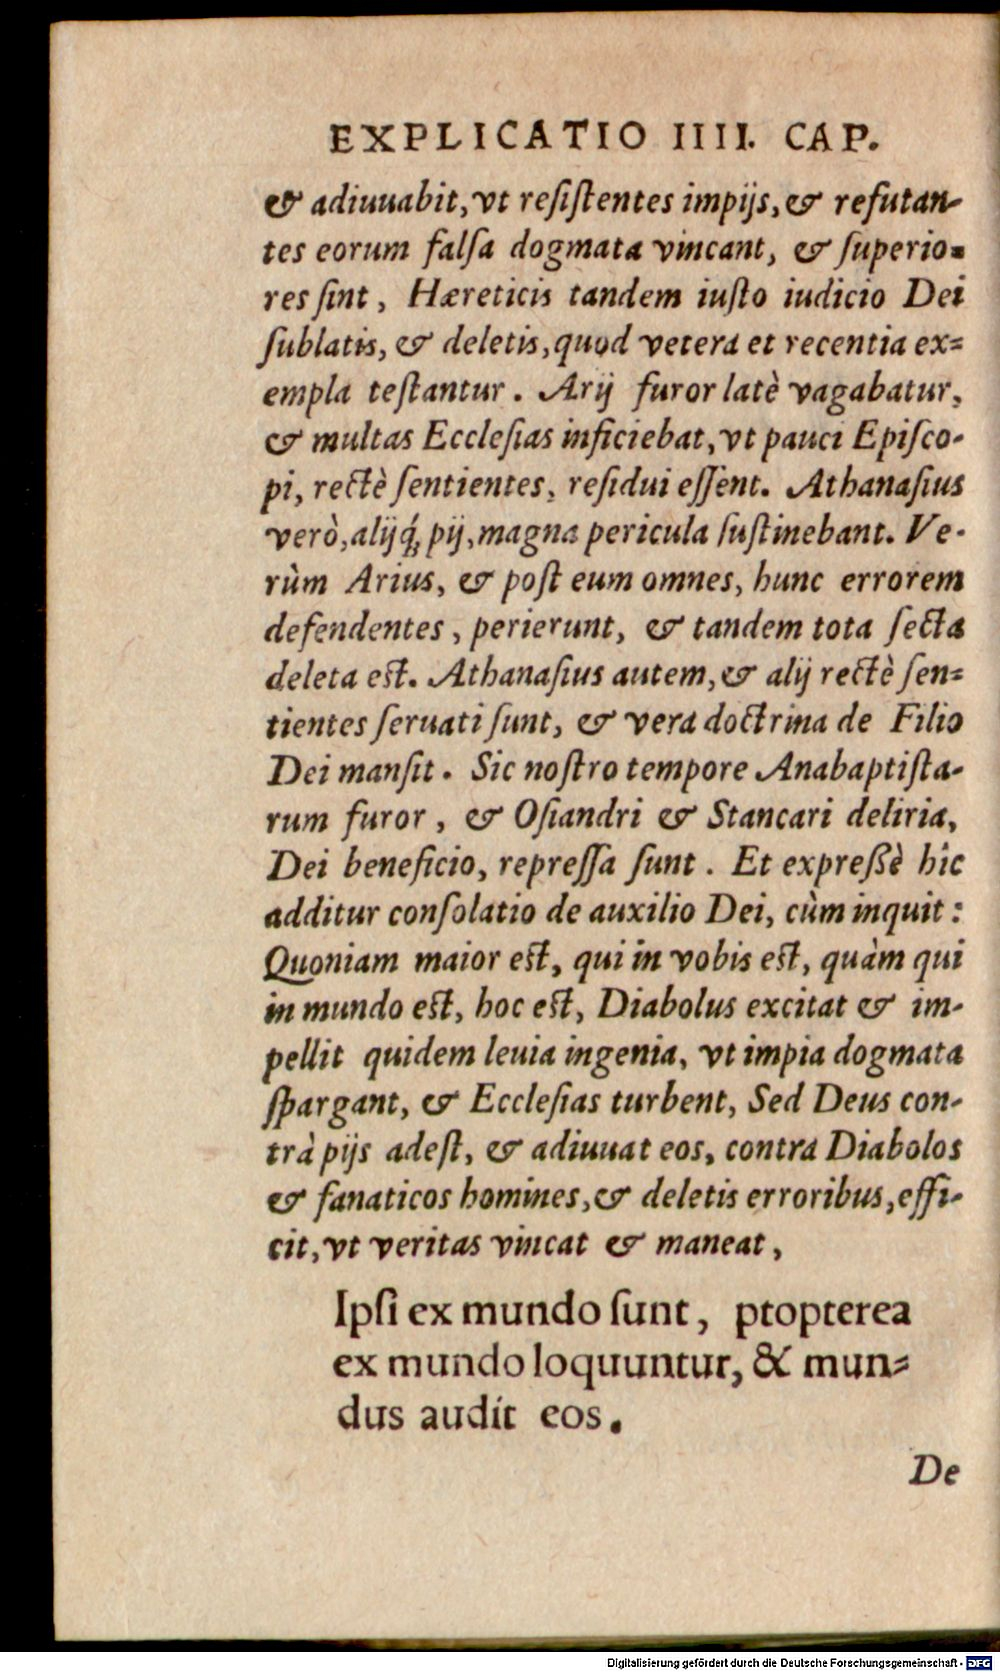 EXPLICATIO IIII. CAP.
& adiuuabit, vt reſiſtentes impijs, & refutan-
tes eorum falſa dogmata vincant, & ſuperio=
res ſint, Hæreticis tandem iuſto iudicio Dei
ſublatis, & deletis, quod vetera et recentia ex=
empla teſtantur. Arij furor latè vagabatur,
& multas Eccleſias inficiebat, vt pauci Epiſco-
pi, rectè ſentientes, reſidui eſſent. Athanaſius
verò, alijq́; pij, magna pericula ſuſtinebant. Ve-
rùm Arius, & poſt eum omnes, hunc errorem
defendentes, perierunt, & tandem tota ſecta
deleta eſt. Athanaſius autem, & alij rectè ſen=
tientes ſeruati ſunt, & vera doctrina de Filio
Dei manſit. Sic noſtro tempore Anabaptiſta-
rum furor, & Oſiandri & Stancari deliria,
Dei beneficio, repreſſa ſunt. Et expreßè hîc
additur conſolatio de auxilio Dei, cùm inquit:
Quoniam maior eſt, qui in vobis eſt, quàm qui
in mundo eſt, hoc eſt, Diabolus excitat & im-
pellit quidem leuia ingenia, vt impia dogmata
ſpargant, & Eccleſias turbent, Sed Deus con-
trà pijs adeſt, & adiuuat eos, contra Diabolos
& fanaticos homines, & deletis erroribus, effi-
cit, vt veritas vincat & maneat,
Ipſi ex mundo ſunt, ptopterea
ex mundo loquuntur, & mun=
dus audit eos.
De
Digitalisierung gefördert durch die Deutsche Forschungsgemeinschaft - DFG